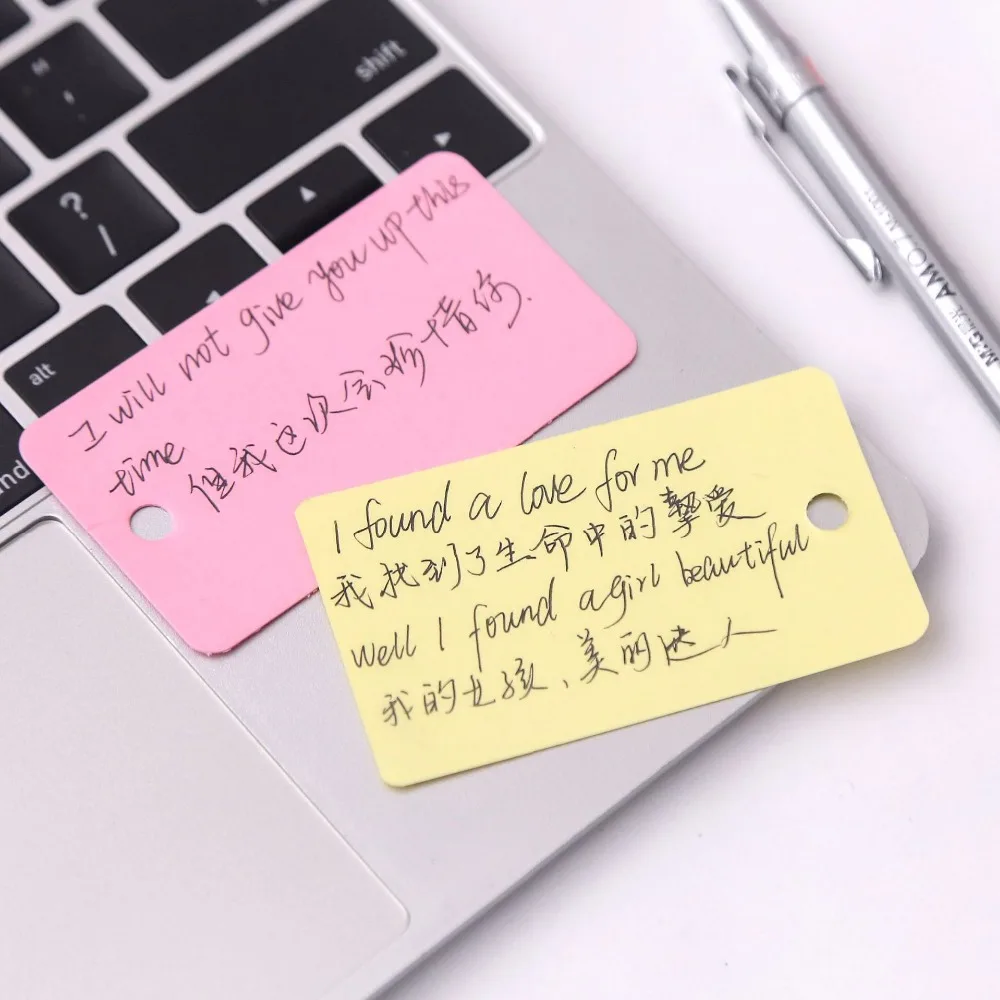 shift
?
/
alt
I will not give you up this
time 但我这次会珍惜你.
I found a love for me
我找到了生命中的挚爱
Well I found a girl beautiful
我的女孩、美的迷人